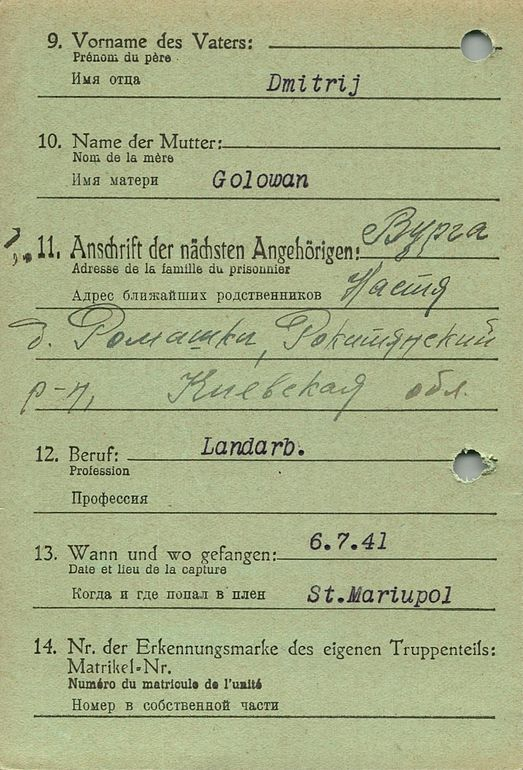 9. Vorname des Vaters:
Prénom du père
Имя отца Dmitrij
10. Name der Mutter:
Nom de la mère
Имя матери Golowan
11. Anschrift der nächsten Angehörigen: Вурга
Adresse de la famille du prisonnier
Адрес ближайших родственников Настя
д. Ромашки, Рокитянский
р-н, Киевская обл.
12. Beruf: Landarb.
Profession
Профессия
13. Wann und wo gefangen: 6.7.41
Date et lieu de la capture
Когда и где попал в плен St.Mariupol
14. Nr. der Erkennungsmarke des eigenen Truppenteils:
Matrikel-Nr.
Numéro du matricule de l'unité
Номер в собственной части